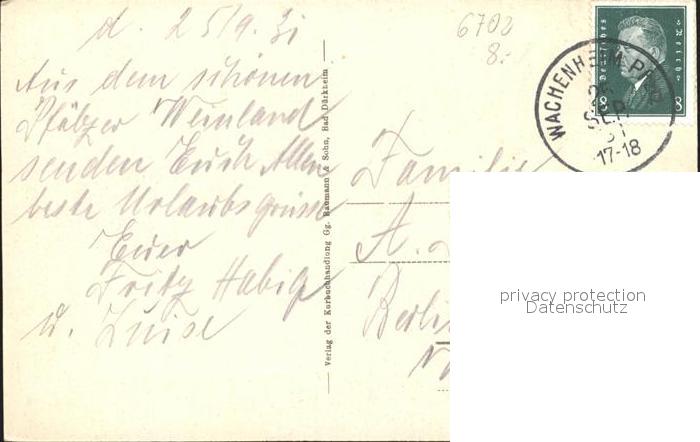 d. 25/9. 31
Aus dem schönen
Pfälzer Weinland
senden Euch Allen
beste Urlaubsgrüsse
Euer
Fritz Habig
u. Luise
Verlag der Kurbuchhandlung Gg. Raumann & Sohn, Bad Dürkheim
6702
8.-
Deutsches Reich
8 8
WACHENHEIM PFALZ
25
SEP
31
17-18
Familie
A.
Berlin
privacy protection
Datenschutz